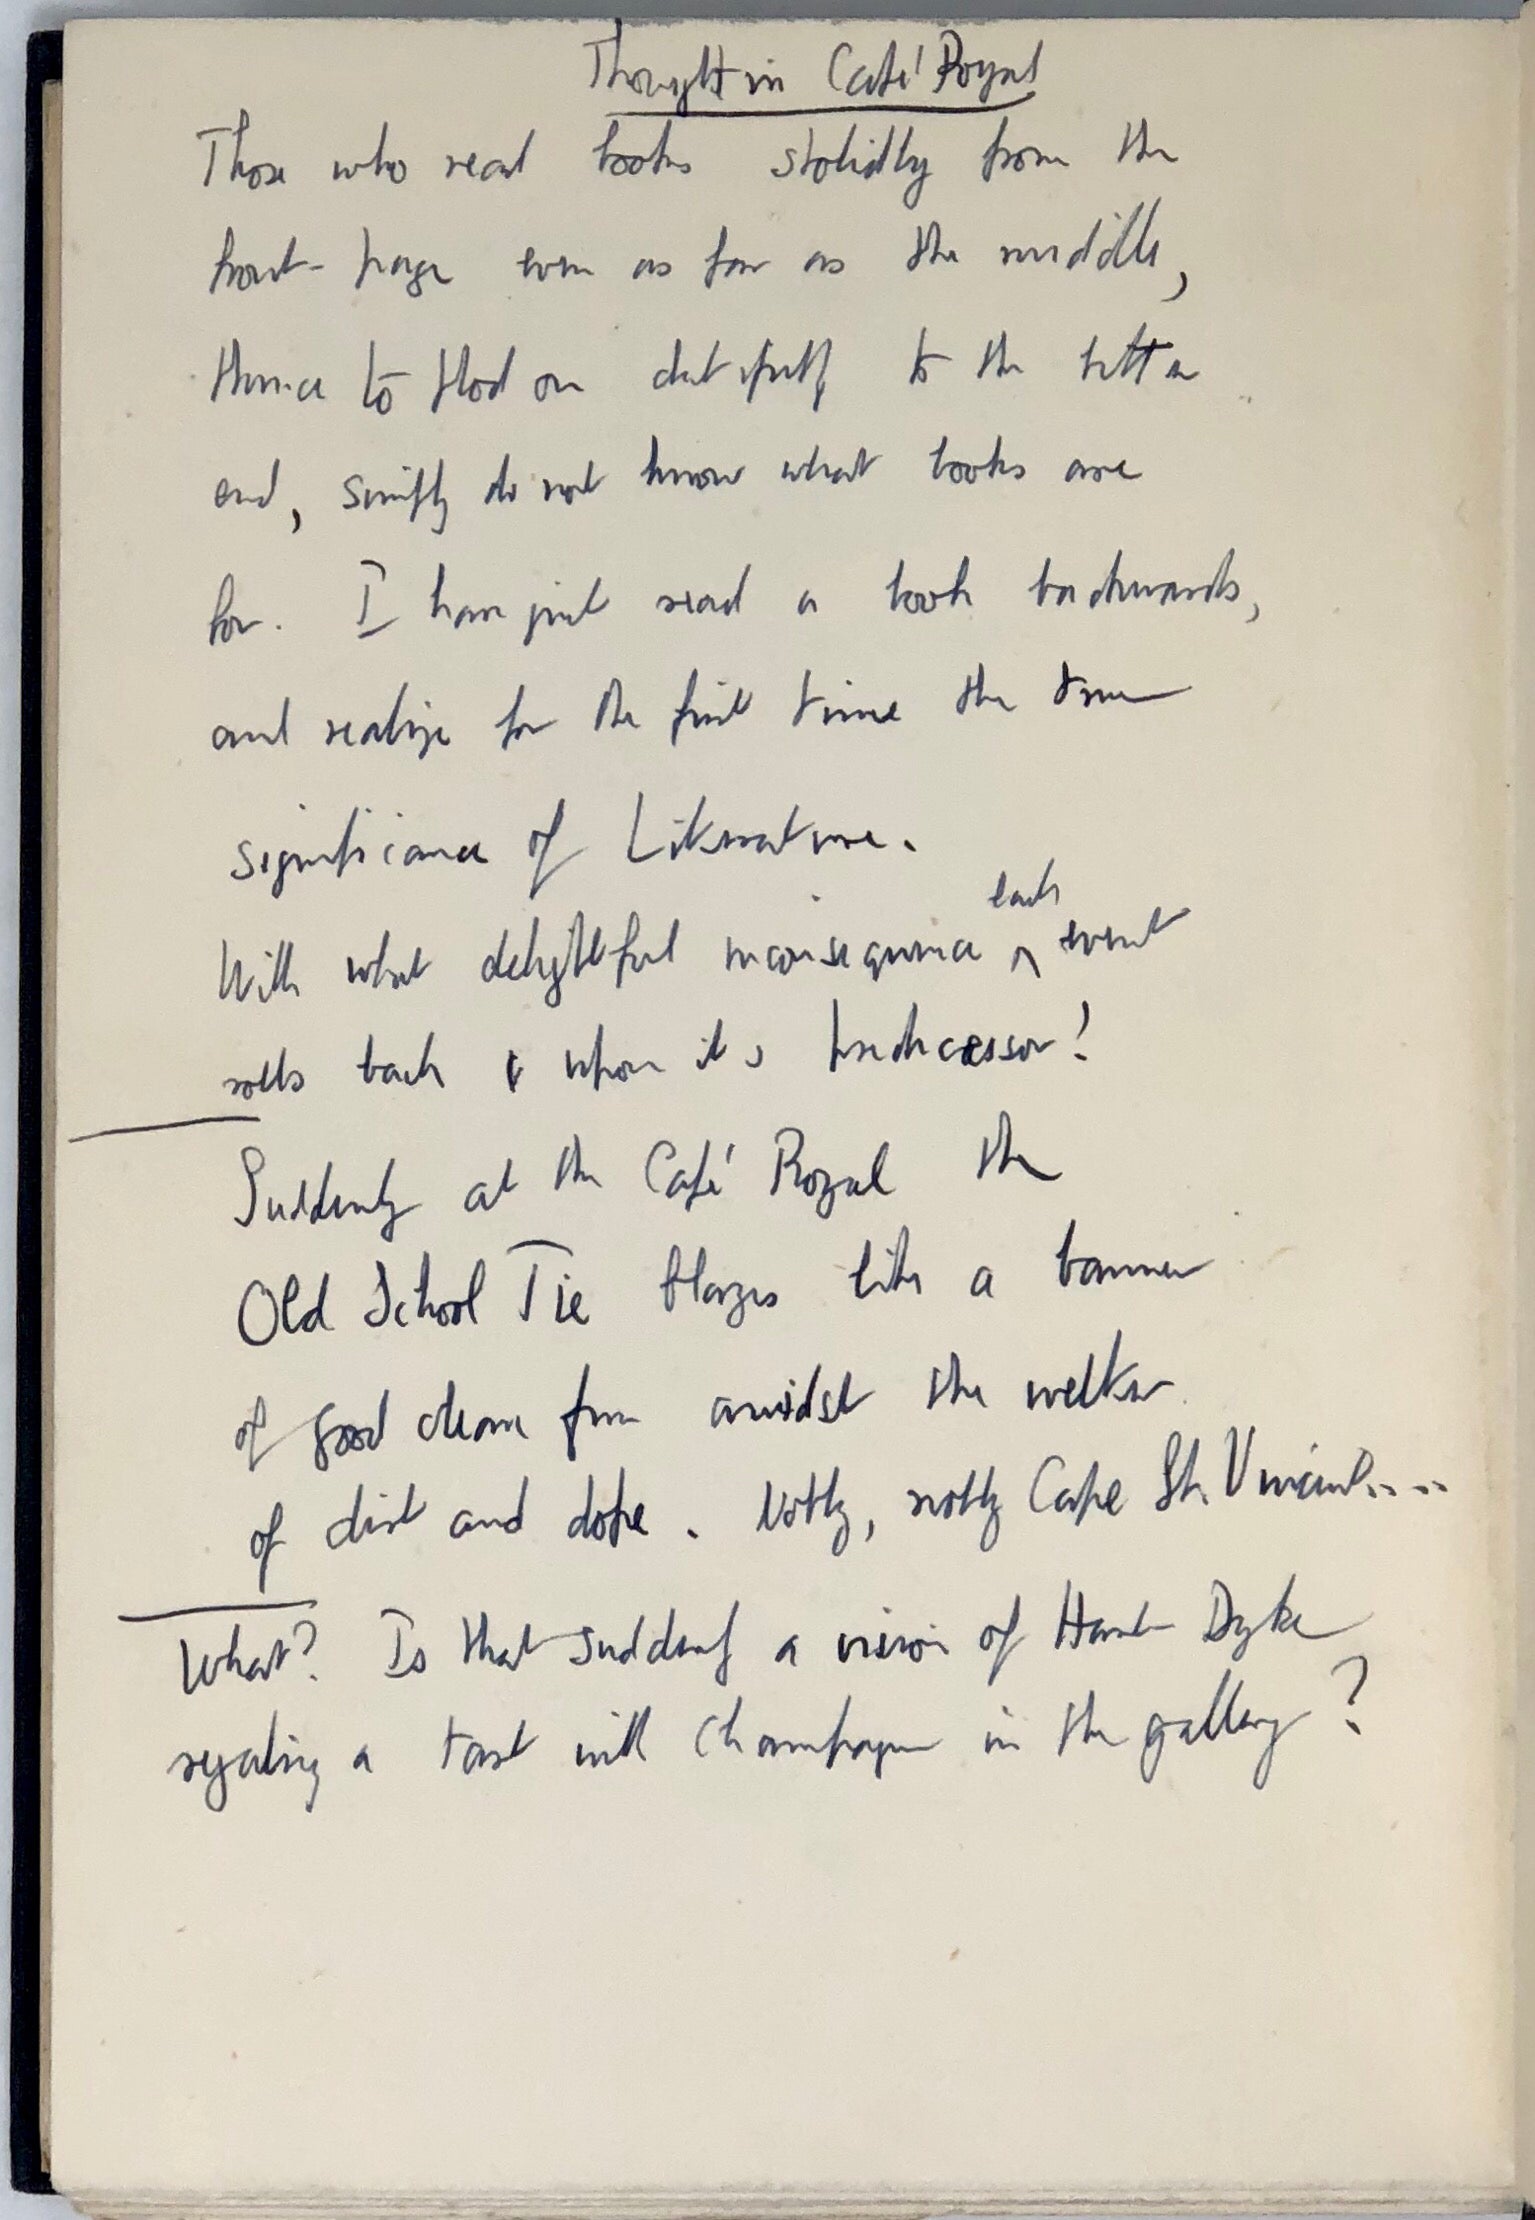 Thought in Café Royal
Those who read books stolidly from the
front-page even as far as the middle,
thence to plod on dutifully to the bitter
end, simply do not know what books are
for. I have just read a book backwards,
and realize for the first time the true
significance of Literature.
With what delightful inconsequence each event
rolls back upon its predecessor!
Suddenly at the Café Royal the
Old School Tie blazes like a banner
of good clean fun amidst the welter
of dirt and dope. Nobly, nobly Cape St. Vincent....
What? Is that suddenly a vision of Hart-Dyke
regaling a tart with Champagne in the gallery?